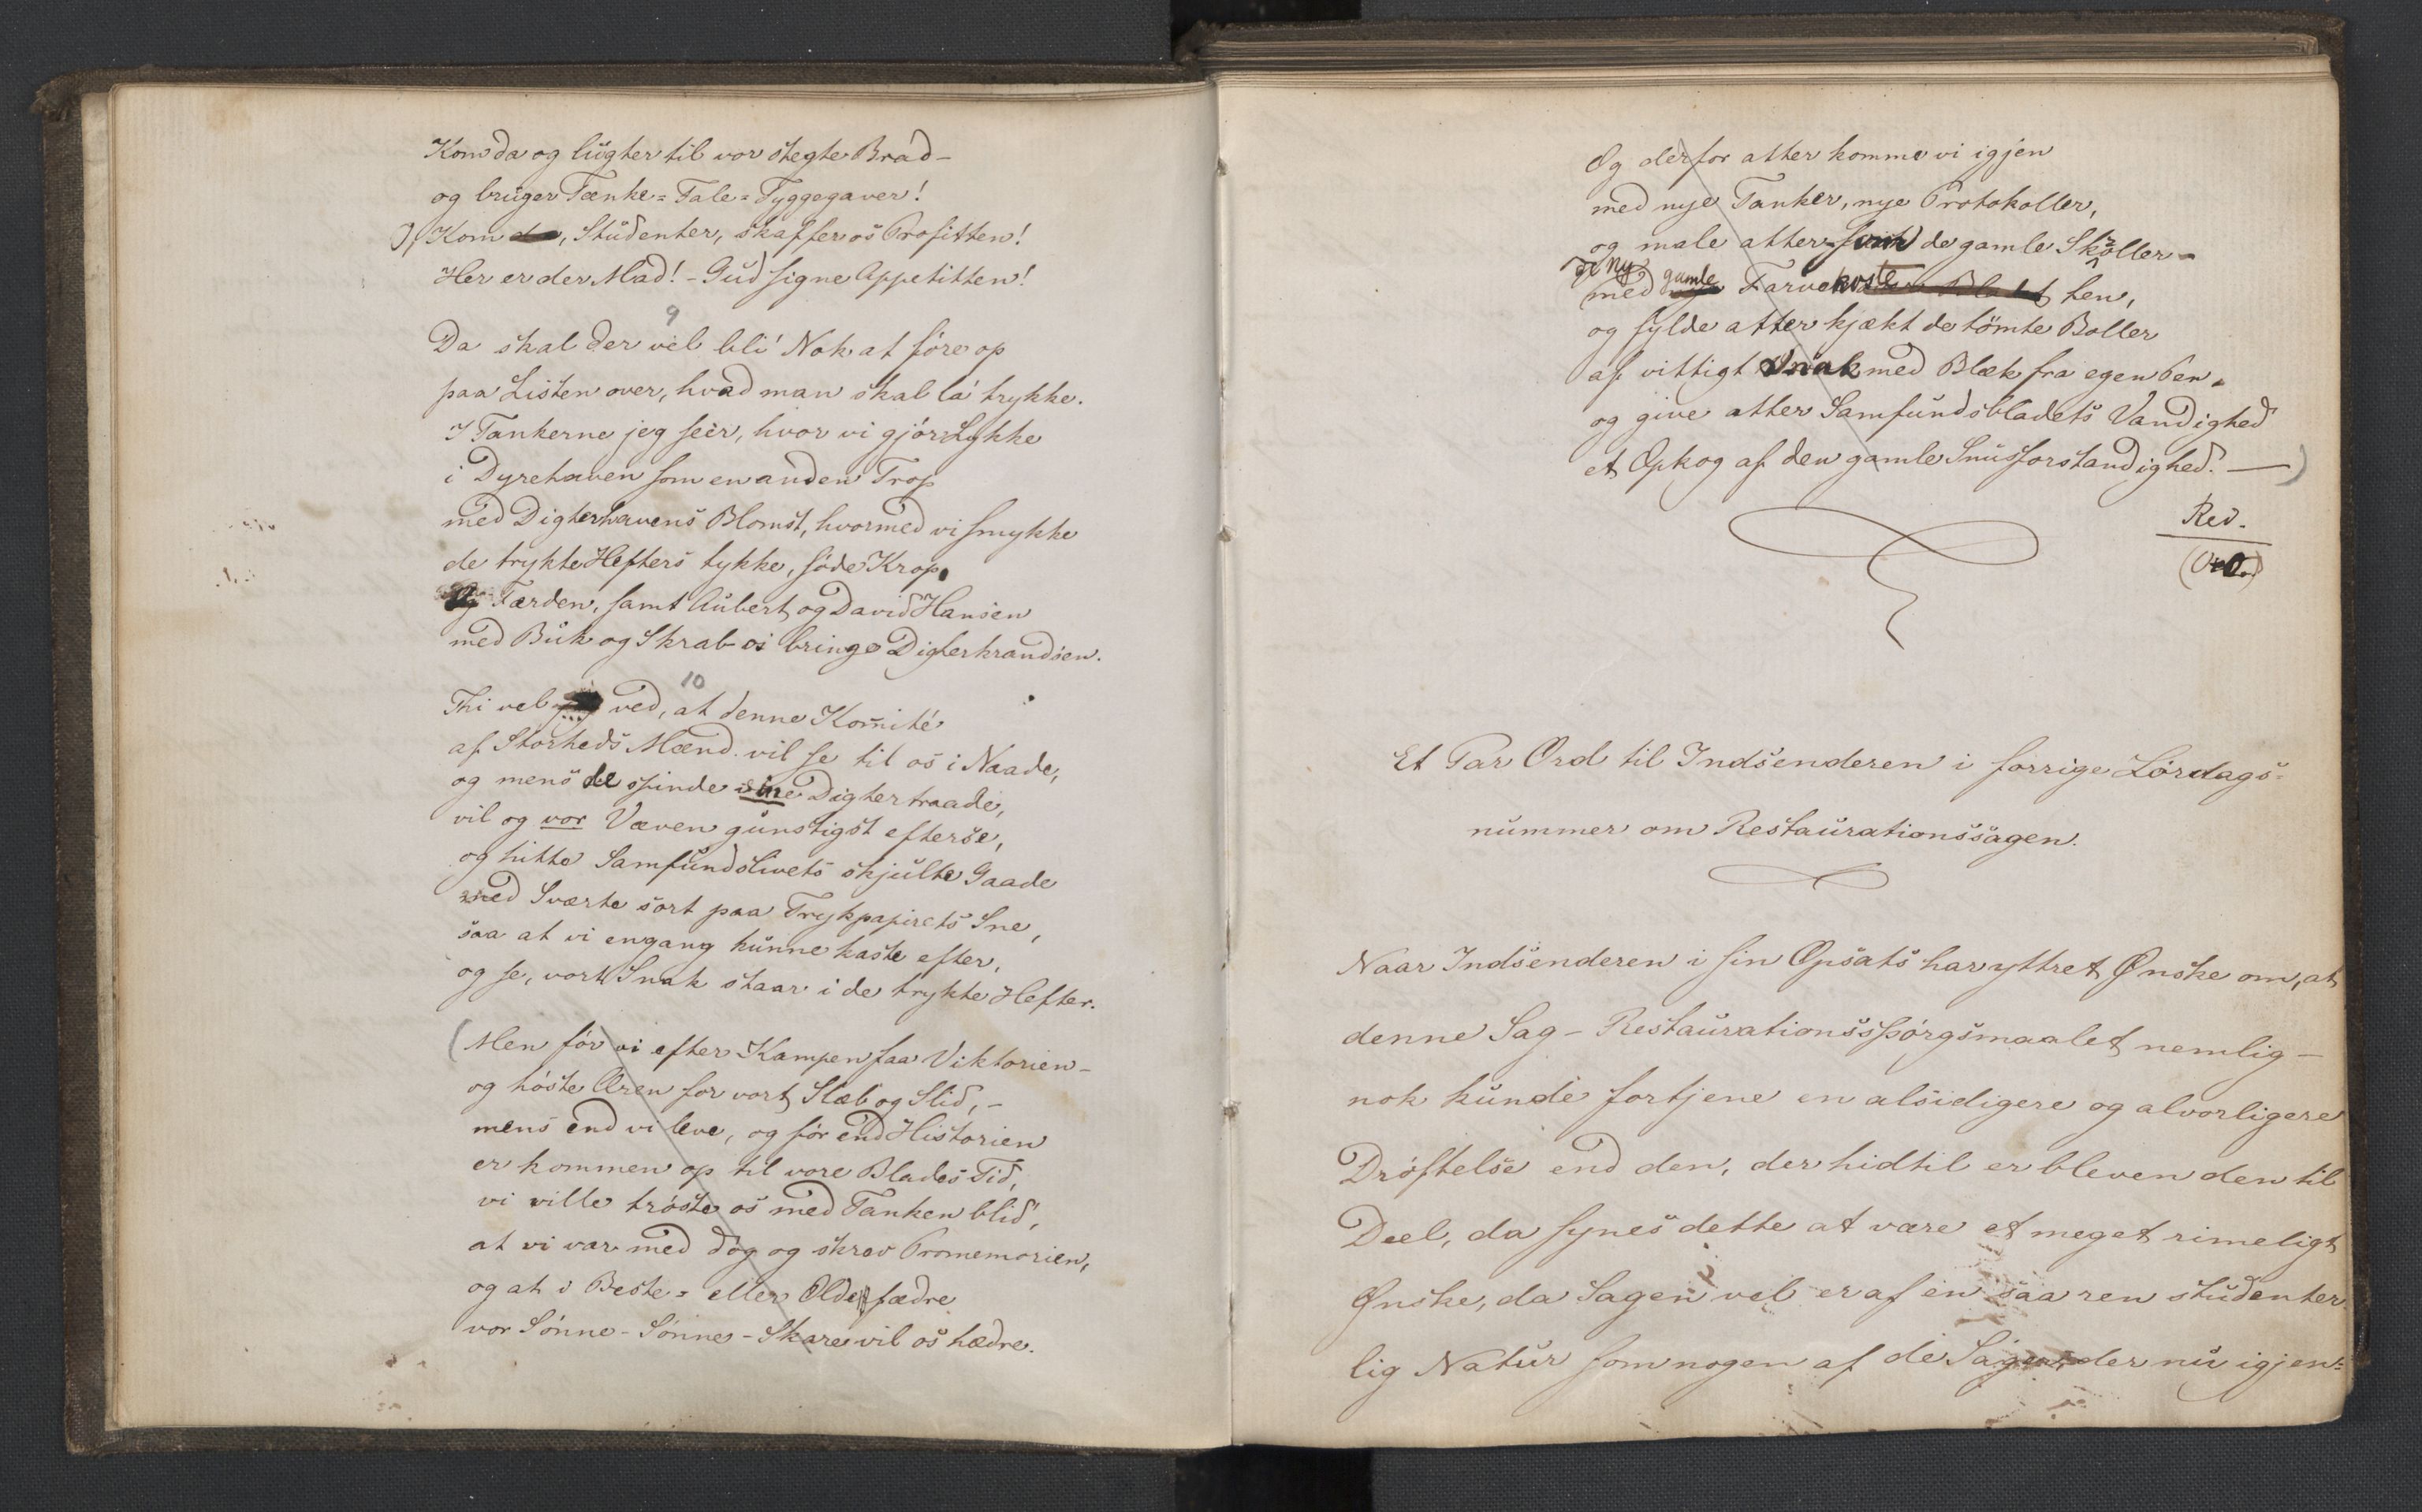 Kom da og lugter til vor stegte Brad -
og bruger Tænke= Tale= Tyggegaver!
O, Kom da, Studenter, skaffer os Profitten!
Her er der Mad! - Gud signe Appetitten!
9
Da skal der vel bli' Nok at före op
paa Listen over, hvad man skal la' trykke.
I Tankerne jeg seer, hvor vi gjör Lykke
i Dyrehaven som en anden Trop
med Digterhavens Blomst, hvormed vi smykke
de trykte Hefters tykke, söde Krop.
Og Færden, samt Aubert og David Hansen
med Buk og Skrab os bringe Digterkrandsen.
10
Thi vel ved, at denne Komité
af Storheds Mænd vil se til os i Naade,
og mens de spinde sine Digtertraade,
vil og vor Væven gunstigst efterse,
og hitte Samfundslivets skjulte Gaade
med Sværte sort paa Trykpapirets Sne,
saa at vi engang kunne kaste efter,
og se, vort Snak staar i de trykte Hefter.
(Men för vi efter Kampen faa Viktorien -
og höste Æren for vort Slæb og Slid, -
mens end vi leve, og för end Historien
er kommen op til vore Blades Tid,
vi ville tröste os med Tanken blid,
at vi var med dog og skrev Promemorien,
og at i Beste= eller Oldefædre
vor Sönne-Sönnes-Skare vil os hædre.
Og derfor atter komme vi igjen
med nye Tanker, nye Protokoller,
og male atter de gamle Skröller -
de ny
med gamle Farvekoste hen,
og fylde atter kjækt de tömte Boller
af vittigt Snak med Blæk fra egen Pen,
og give atter Samfundsbladets Vandighed
et Opkog af den gamle Snusforstandighed. —)
Red.
Et Par Ord til Indsenderen i forrige Lördags=
nummer om Restaurationssagen.
Naar Indsenderen i sin Opsats har yttret Ønske om, at
denne Sag - Restaurationsspörgsmaalet nemlig -
nok kunde fortjene en alsidigere og alvorligere
Dröftelse end den, der hidtil er bleven den til
Deel, da synes dette at være et meget rimeligt
Ønske, da Sagen vel er af en saa ren studenter
lig Natur som nogen af de Sager, der nu igjen=